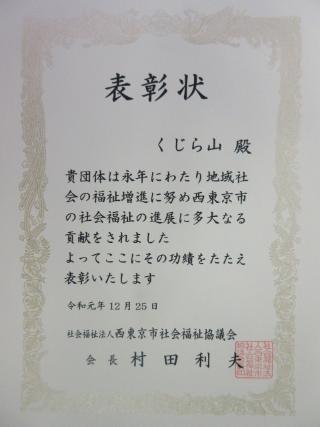 表彰状
くじら山 殿
貴団体は永年にわたり地域社
会の福祉増進に努め西東京市
の社会福祉の進展に多大なる
貢献をされました
よってここにその功績をたたえ
表彰いたします
令和元年12月25日
社会福祉法人西東京市社会福祉協議会
会長 村田利夫